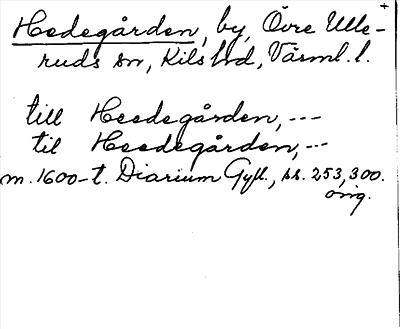 Hedegården, by, Övre Ulle-
ruds sn, Kils hd, Värml. l.
till Heedegården, ---
til Heedegården, ---
m. 1600-t. Diarium Gyll., ss. 253, 300.
orig.